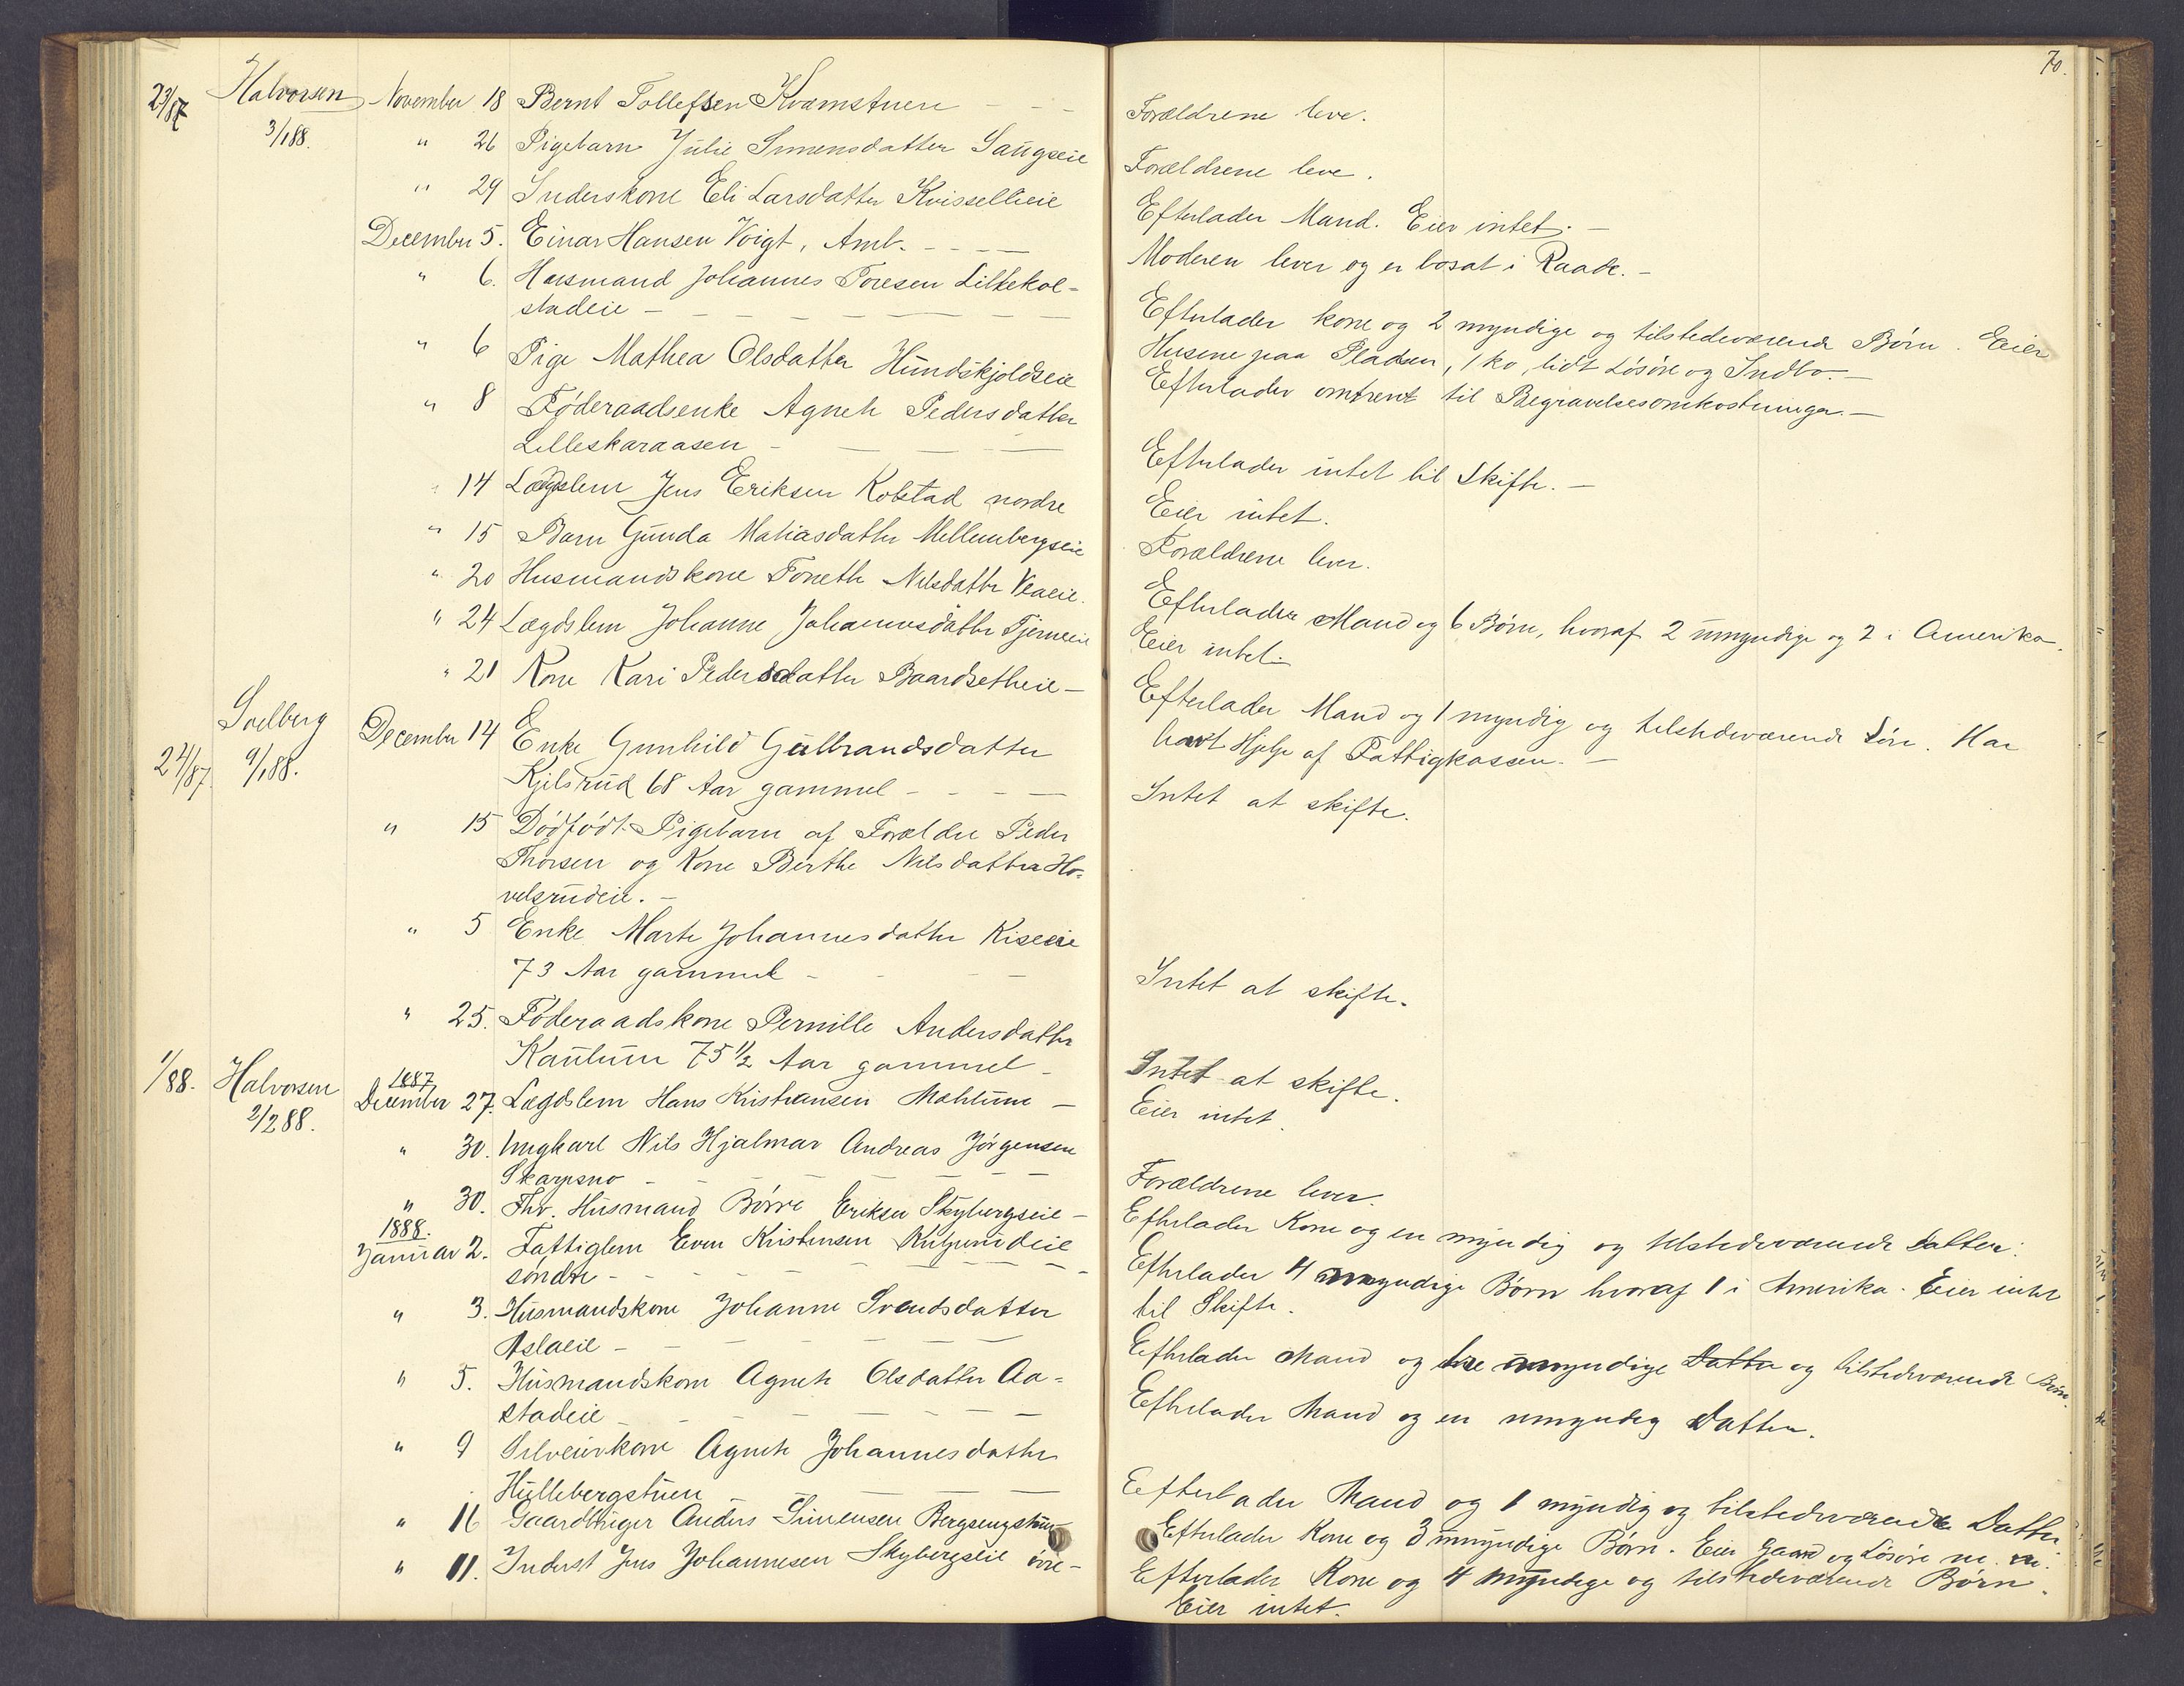 70.
23/87 Halvorsen November 18 Bernt Tollefsen Kvamstuen - - -
3/1 88. " 26 Pigebarn Julie Simensdatter Saugseie
" 29 Inderskone Eli Larsdatter Kvisellieie
December 5. Einar Hansen Voigt, Amb. - - -
" 6. Husmand Johannes Toresen Lillekol-
stadeie - - -
" 6 Pige Mathea Olsdatter Hundskjoldseie
" 8 Føderaadsenke Agneth Pedersdatter
Lilleskaraasen - - -
" 14 Lægdslem Jens Eriksen Kolstad nordre
" 15 Barn Gunda Matiasdatter Mellembergseie
" 20 Husmandskone Toneth Nilsdatter Veaeie.
" 24 Lægdslem Johanne Johannesdatter Tjerneeie
" 21 Kone Kari Pedersdatter Baardsetheie -
24/87 Soelberg 9/1 88. December 14 Enke Gunhild Gulbrandsdatter
Kjelsrud 68 Aar gammel - - -
" 15 Dødfødt Pigebarn af Forældre Peder
Thorsen og Kone Berthe Nilsdatter Ho-
velsrudeie. -
" 5 Enke Marte Johannesdatter Kiseeie
73 Aar gammel - -
" 25. Føderaadskone Pernille Andersdatter
Kaulum 75 1/2 Aar gammel -
1/88. Halvorsen 2/2 88. 1887 December 27. Lægdslem Hans Kristiansen Mahlum -
" 30. Ungkarl Nils Hjalmar Andreas Jørgensen
Skarpsno - - -
" 30. Fhv. Husmand Børre Eriksen Skybergseie -
1888. Januar 2. Fattiglem Even Kristensen Kulpurudeie
søndre - - -
" 3. Husmandskone Johanne Svendsdatter
Aslaeie - - -
" 5. Husmandskone Agnete Olsdatter Aa-
stadeie - - -
" 9 Selveierkone Agnete Johannesdatter
Hullebergstuen - - -
" 16 Gaardbruger Anders Simensen Bergsengstuen
" 11. Inderst Jens Johannesen Skybergseie øvre -
Forældrene leve.
Forældrene leve.
Efterlader Mand. Eier intet. -
Moderen lever og er bosat i Raade. -
Efterlader kone og 2 myndige og tilstedeværende Børn. Eier
Husene paa Pladsen, 1 ko, lidt Løsøre og Indbo. -
Efterlader omtrent til Begravelsesomkostninger. -
Efterlader intet til Skifte. -
Eier intet.
Forældrene lever.
Efterlader Mand og 6 Børn, hvoraf 2 umyndige og 2 i Amerika.
Eier intet. -
Efterlader Mand og 1 myndig og tilstedeværende Søn. Har
havt Hjelp af Fattigkassen. -
Intet at skifte.
Intet at skifte.
Intet at skifte.
Eier intet.
Forældrene lever.
Efterlader Kone og en myndig og tilstedeværende Datter.
Efterlader 4 myndige Børn hvoraf 1 i Amerika. Eier intet
til Skifte.
Efterlader Mand og tre umyndige Datter og tilstedeværende Børn.
Efterlader Mand og en umyndig Datter.
Efterlader Mand og 1 myndig og tilstedeværende Datter.
Efterlader Kone og 3 umyndige Børn. Eier Gaard og Løsøre m. m.
Efterlader Kone og 4 myndige og tilstedeværende Børn.
Eier intet.